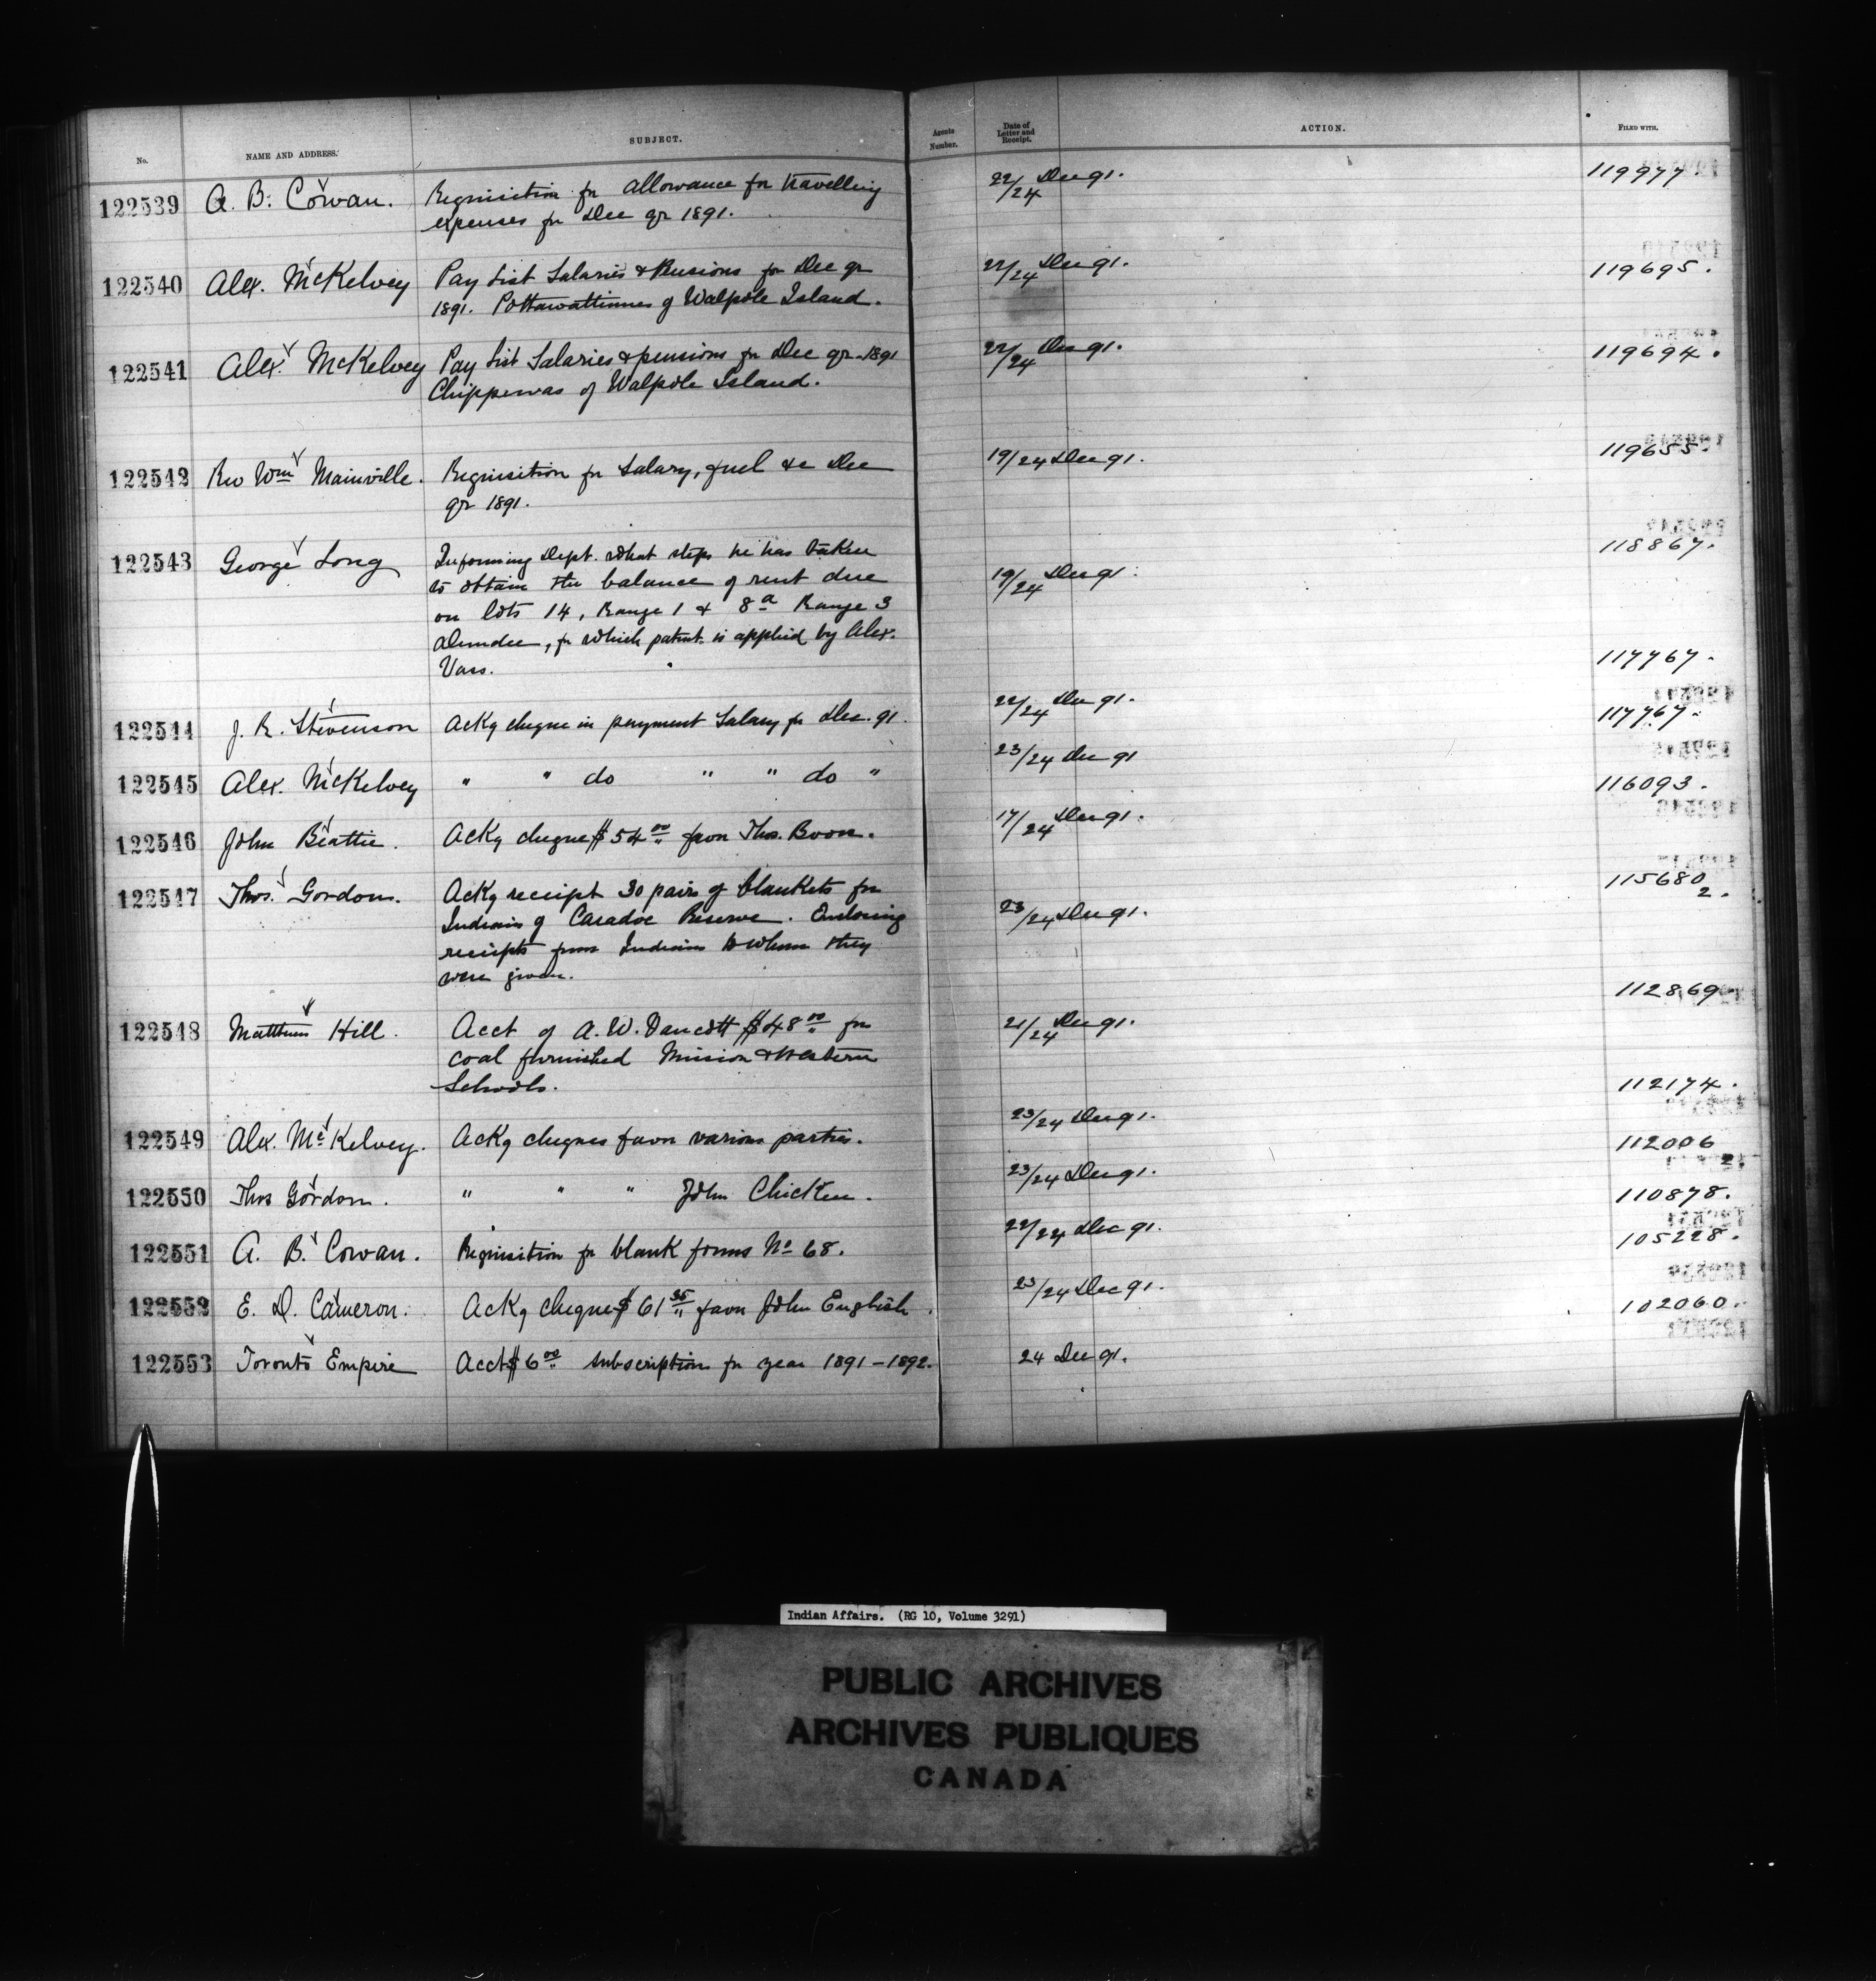 No. NAME AND ADDRESS. SUBJECT. Agents Number. Date of Letter and Receipt. ACTION. FILED WITH.
122539 A. B. Cowan. Requisition for allowance for travelling 22/24 Dec 91. 119977
expenses for Dec qr 1891.
122540 Alex. McKelvey Pay List Salaries & Pensions for Dec qr 22/24 Dec 91. 119695.
1891. Pottawattimies of Walpole Island.
122541 Alex. McKelvey Pay List Salaries & pensions for Dec qr 1891 22/24 Dec 91. 119694.
Chippewas of Walpole Island.
122542 Rev Wm Mainville. Requisition for Salary, fuel &c Dec 19/24 Dec 91. 119655.
qr 1891.
122543 George Long Informing Dept. what steps he has taken 19/24 Dec 91. 118867.
to obtain the balance of rent due
on lots 14, Range 1 & 8a Range 3
Dundee, for which patent is applied by Alex.
Vass. 117767.
122544 J. R. Stevenson Ackg cheque in payment Salary for Dec. 91. 22/24 Dec 91. 117767.
122545 Alex. McKelvey " " do " " do " 23/24 Dec 91 116093.
122546 John Beattie. Ackg cheque $54 00 favor Thos. Boon. 17/24 Dec 91.
122547 Thos. Gordon. Ackg receipt 30 pairs of blankets for 23/24 Dec 91. 115680
2.
Indians of Caradoc Reserve. Enclosing
receipts from Indians to whom they
were given. 112869
122548 Matthew Hill. Acct of A. W. $48 00 for 21/24 Dec 91.
coal furnished Mission & Western
Schools. 112174.
122549 Alex. McKelvey. Ackg cheques favor various parties. 23/24 Dec 91. 112006
2.
122550 Thos Gordon. " " " John Chicken. 23/24 Dec 91. 110878.
122551 A. B. Cowan. Requisition for blank forms No 68. 22/24 Dec 91. 105228.
122552 E. D. Cameron. Ackg cheque $61 35 favor John English. 23/24 Dec 91. 102060.
122553 Toronto Empire Acct $6 00 subscription for year 1891-1892. 24 Dec 91.
Indian Affairs. (RG 10, Volume 3291)
PUBLIC ARCHIVES
ARCHIVES PUBLIQUES
CANADA